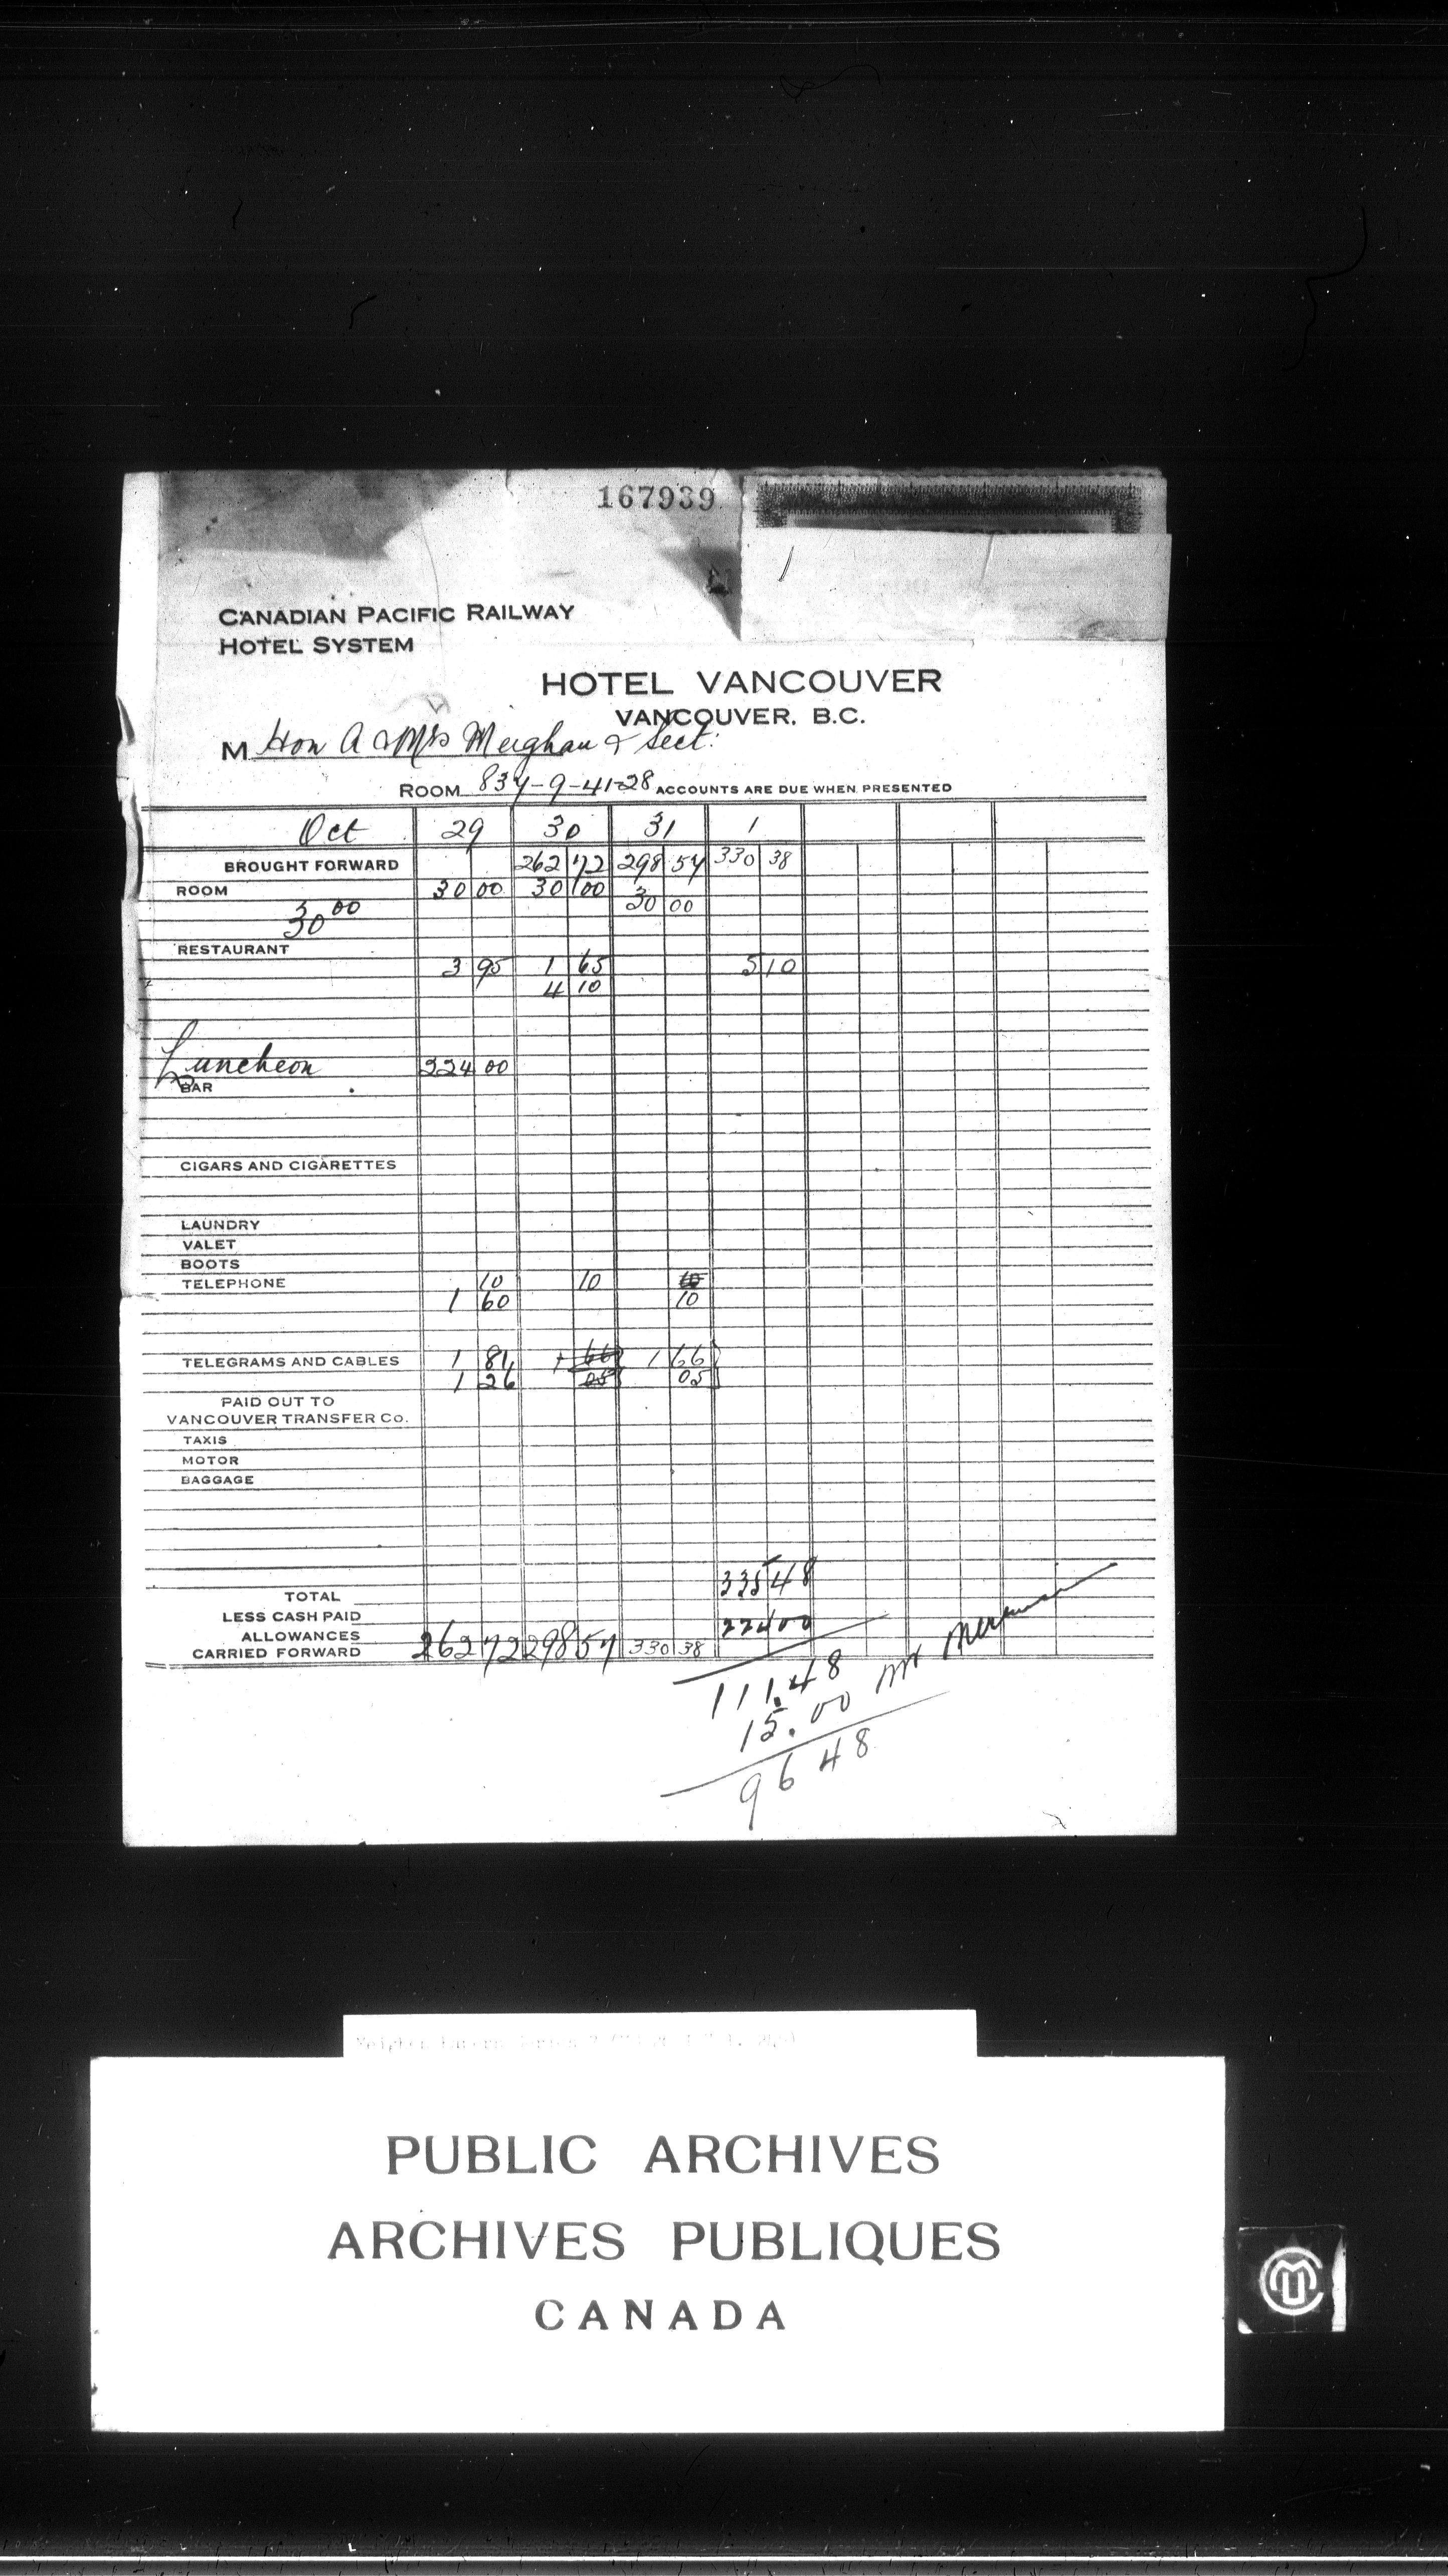 167939
CANADIAN PACIFIC RAILWAY
HOTEL SYSTEM
HOTEL VANCOUVER
VANCOUVER, B.C.
M Hon A & Mrs Meighan & Sect:
ROOM 834-9-41-28 ACCOUNTS ARE DUE WHEN PRESENTED
Oct 29 30 31 1
BROUGHT FORWARD 262 72 298 57 330 38
ROOM 30 00 30 00
30 00 30 00
RESTAURANT
3 95 1 65 5 10
4 10
Luncheon 224 00
BAR
CIGARS AND CIGARETTES
LAUNDRY
VALET
BOOTS
TELEPHONE 10 10 10
1 60 10
TELEGRAMS AND CABLES 1 81 1 66 1 66
1 26 05 05
PAID OUT TO
VANCOUVER TRANSFER CO.
TAXIS
MOTOR
BAGGAGE
335 48
TOTAL
LESS CASH PAID 224 00
ALLOWANCES
CARRIED FORWARD 262 72 298 57 330 38
111.48
15.00 Mr
96 48
PUBLIC ARCHIVES
ARCHIVES PUBLIQUES
CANADA